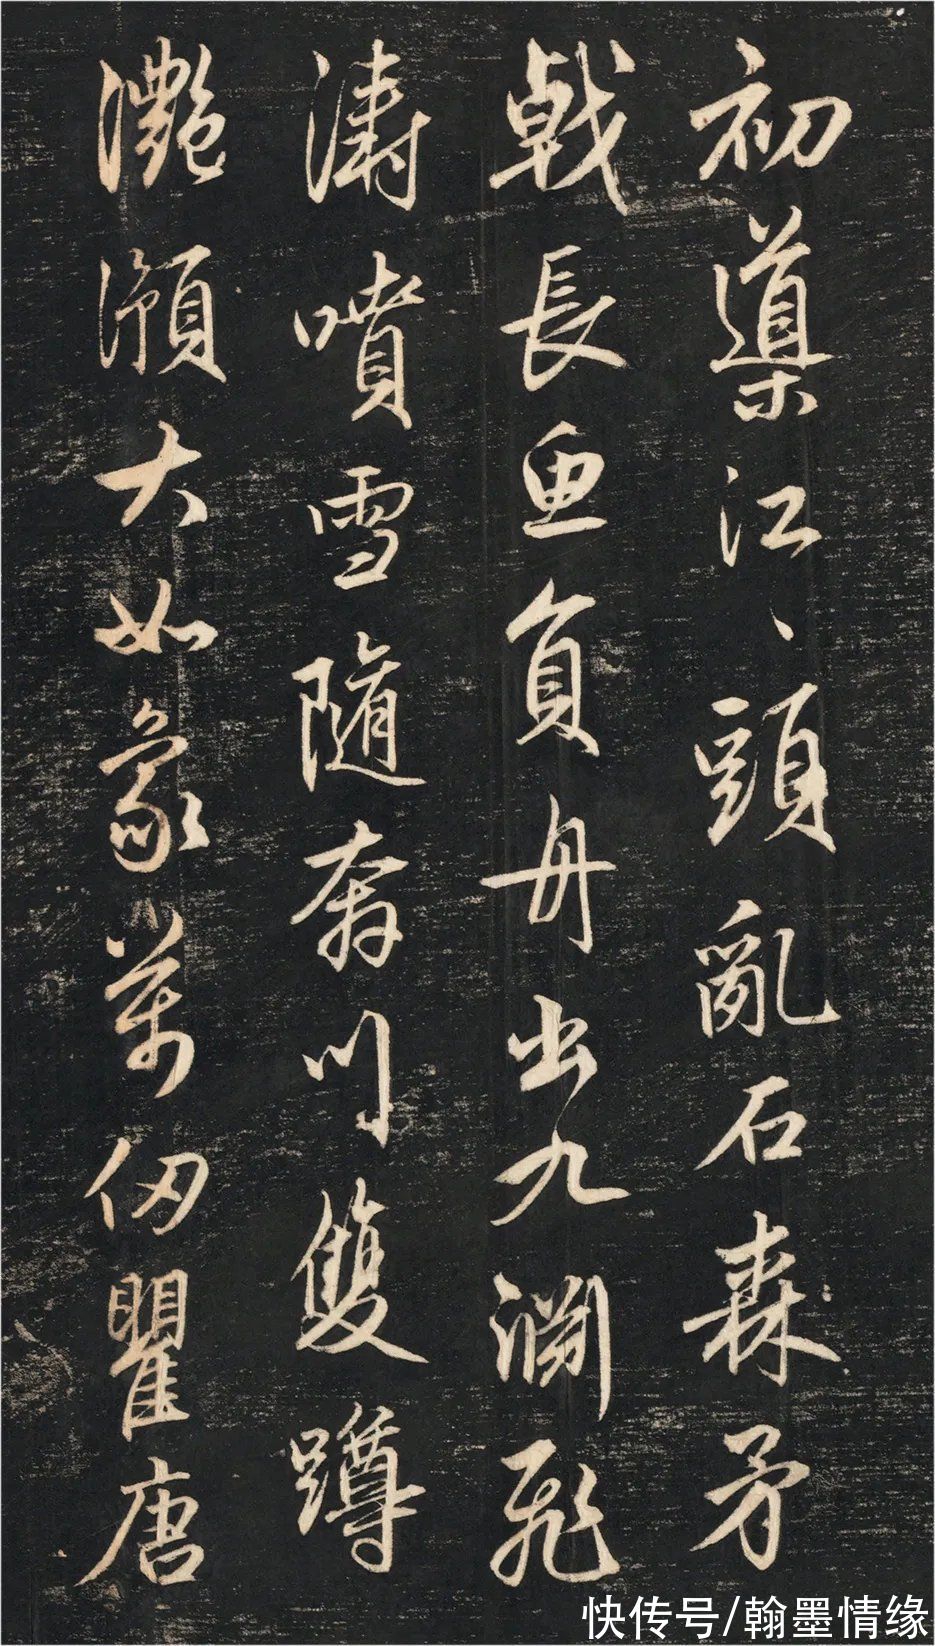 初導江、頭亂石森矛
戟長魚負舟出九淵飛
濤噴雪隨奔川雙蹲
灩澦大如象萬仞瞿唐
快传号/翰墨情缘